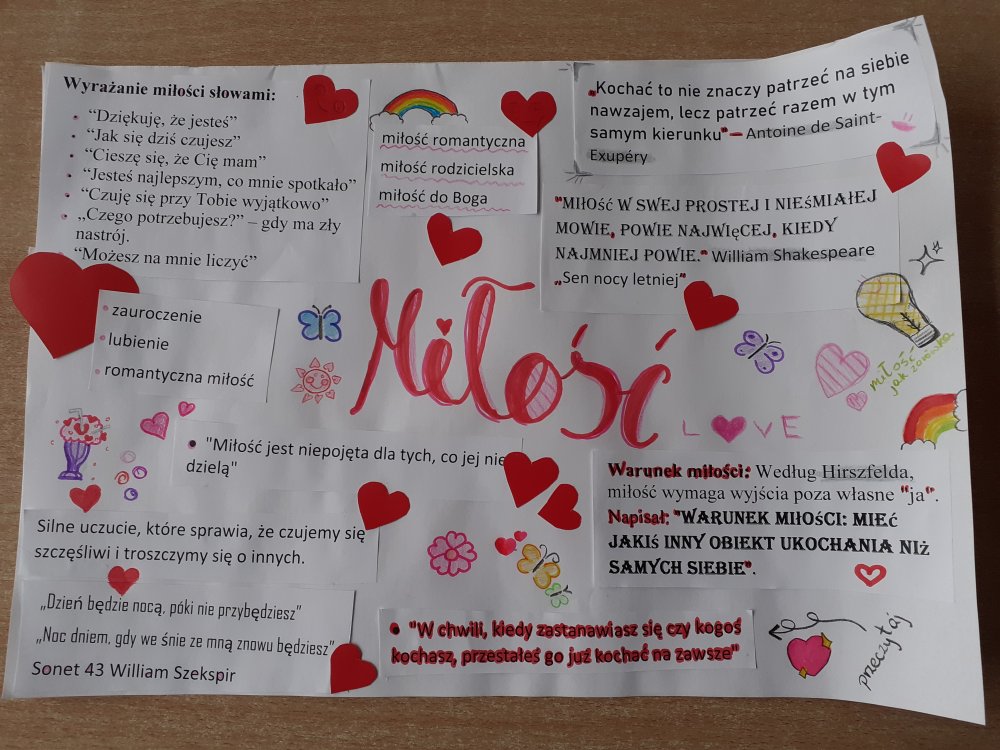 Wyrażanie miłości słowami:
• “Dziękuję, że jesteś”
• “Jak się dziś czujesz”
• “Cieszę się, że Cię mam”
• “Jesteś najlepszym, co mnie spotkało”
• “Czuję się przy Tobie wyjątkowo”
• „Czego potrzebujesz?” – gdy ma zły
nastrój.
“Możesz na mnie liczyć”
miłość romantyczna
miłość rodzicielska
miłość do Boga
„Kochać to nie znaczy patrzeć na siebie
nawzajem, lecz patrzeć razem w tym
samym kierunku” — Antoine de Saint-
Exupéry
"MIŁOŚĆ W SWEJ PROSTEJ I NIEŚMIAŁEJ
MOWIE, POWIE NAJWIĘCEJ, KIEDY
NAJMNIEJ POWIE." William Shakespeare
„Sen nocy letniej"
• zauroczenie
• lubienie
• romantyczna miłość
Miłość
LOVE
miłość
jak żarówka
• "Miłość jest niepojęta dla tych, co jej nie
dzielą"
Warunek miłości: Według Hirszfelda,
miłość wymaga wyjścia poza własne "ja".
Napisał: "WARUNEK MIŁOŚCI: MIEĆ
JAKIŚ INNY OBIEKT UKOCHANIA NIŻ
SAMYCH SIEBIE".
Silne uczucie, które sprawia, że czujemy się
szczęśliwi i troszczymy się o innych.
„Dzień będzie nocą, póki nie przybędziesz”
„Noc dniem, gdy we śnie ze mną znowu będziesz”
Sonet 43 William Szekspir
• "W chwili, kiedy zastanawiasz się czy kogoś
kochasz, przestałeś go już kochać na zawsze"
przeczytaj